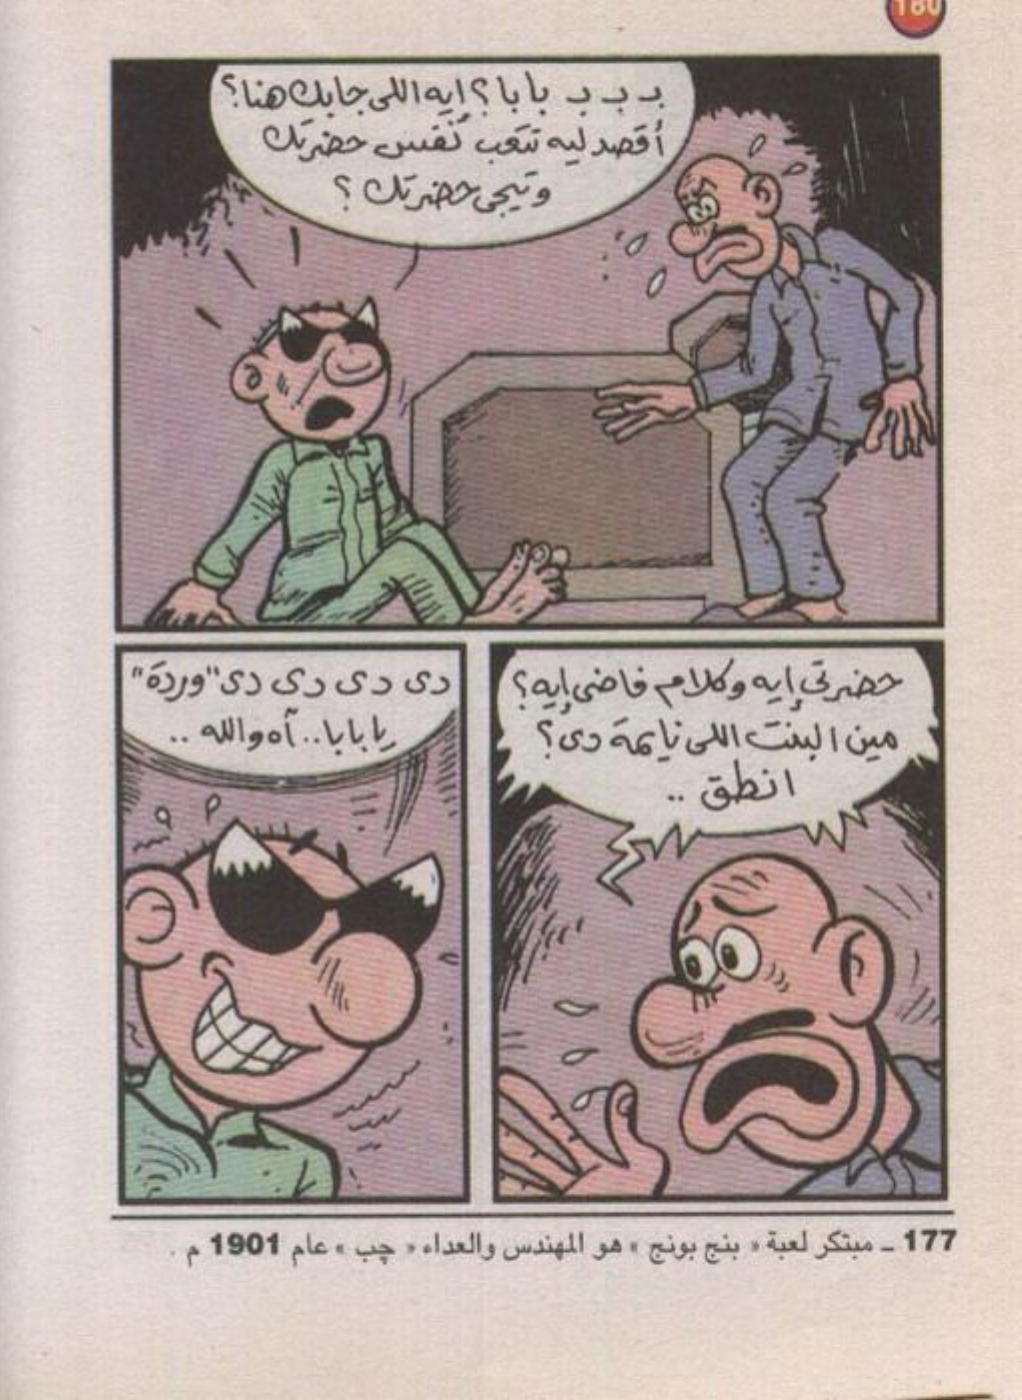 180
بـ بـ بـ بابا؟ إيه اللى جابك هنا؟
أقصد ليه تتعب نفس حضرتك
وتيجى حضرتك؟
حضرتى إيه وكلام فاضى إيه؟
مين البنت اللى نايمة دى؟
انطق ..
دى دى دى دى دى "وردة"
يا بابا.. آه والله ..
177 ـ مبتكر لعبة « بنج بونج » هو المهندس والعداء « چب » عام 1901 م .